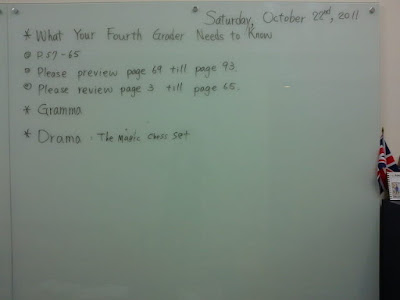 Saturday, October 22nd, 2011
* What Your Fourth Grader Needs to Know
⊙ P57-65
⊙ Please preview page 69 till page 93.
⊙ Please review page 3 till page 65.
* Gramma
* Drama : The Magic Chess Set